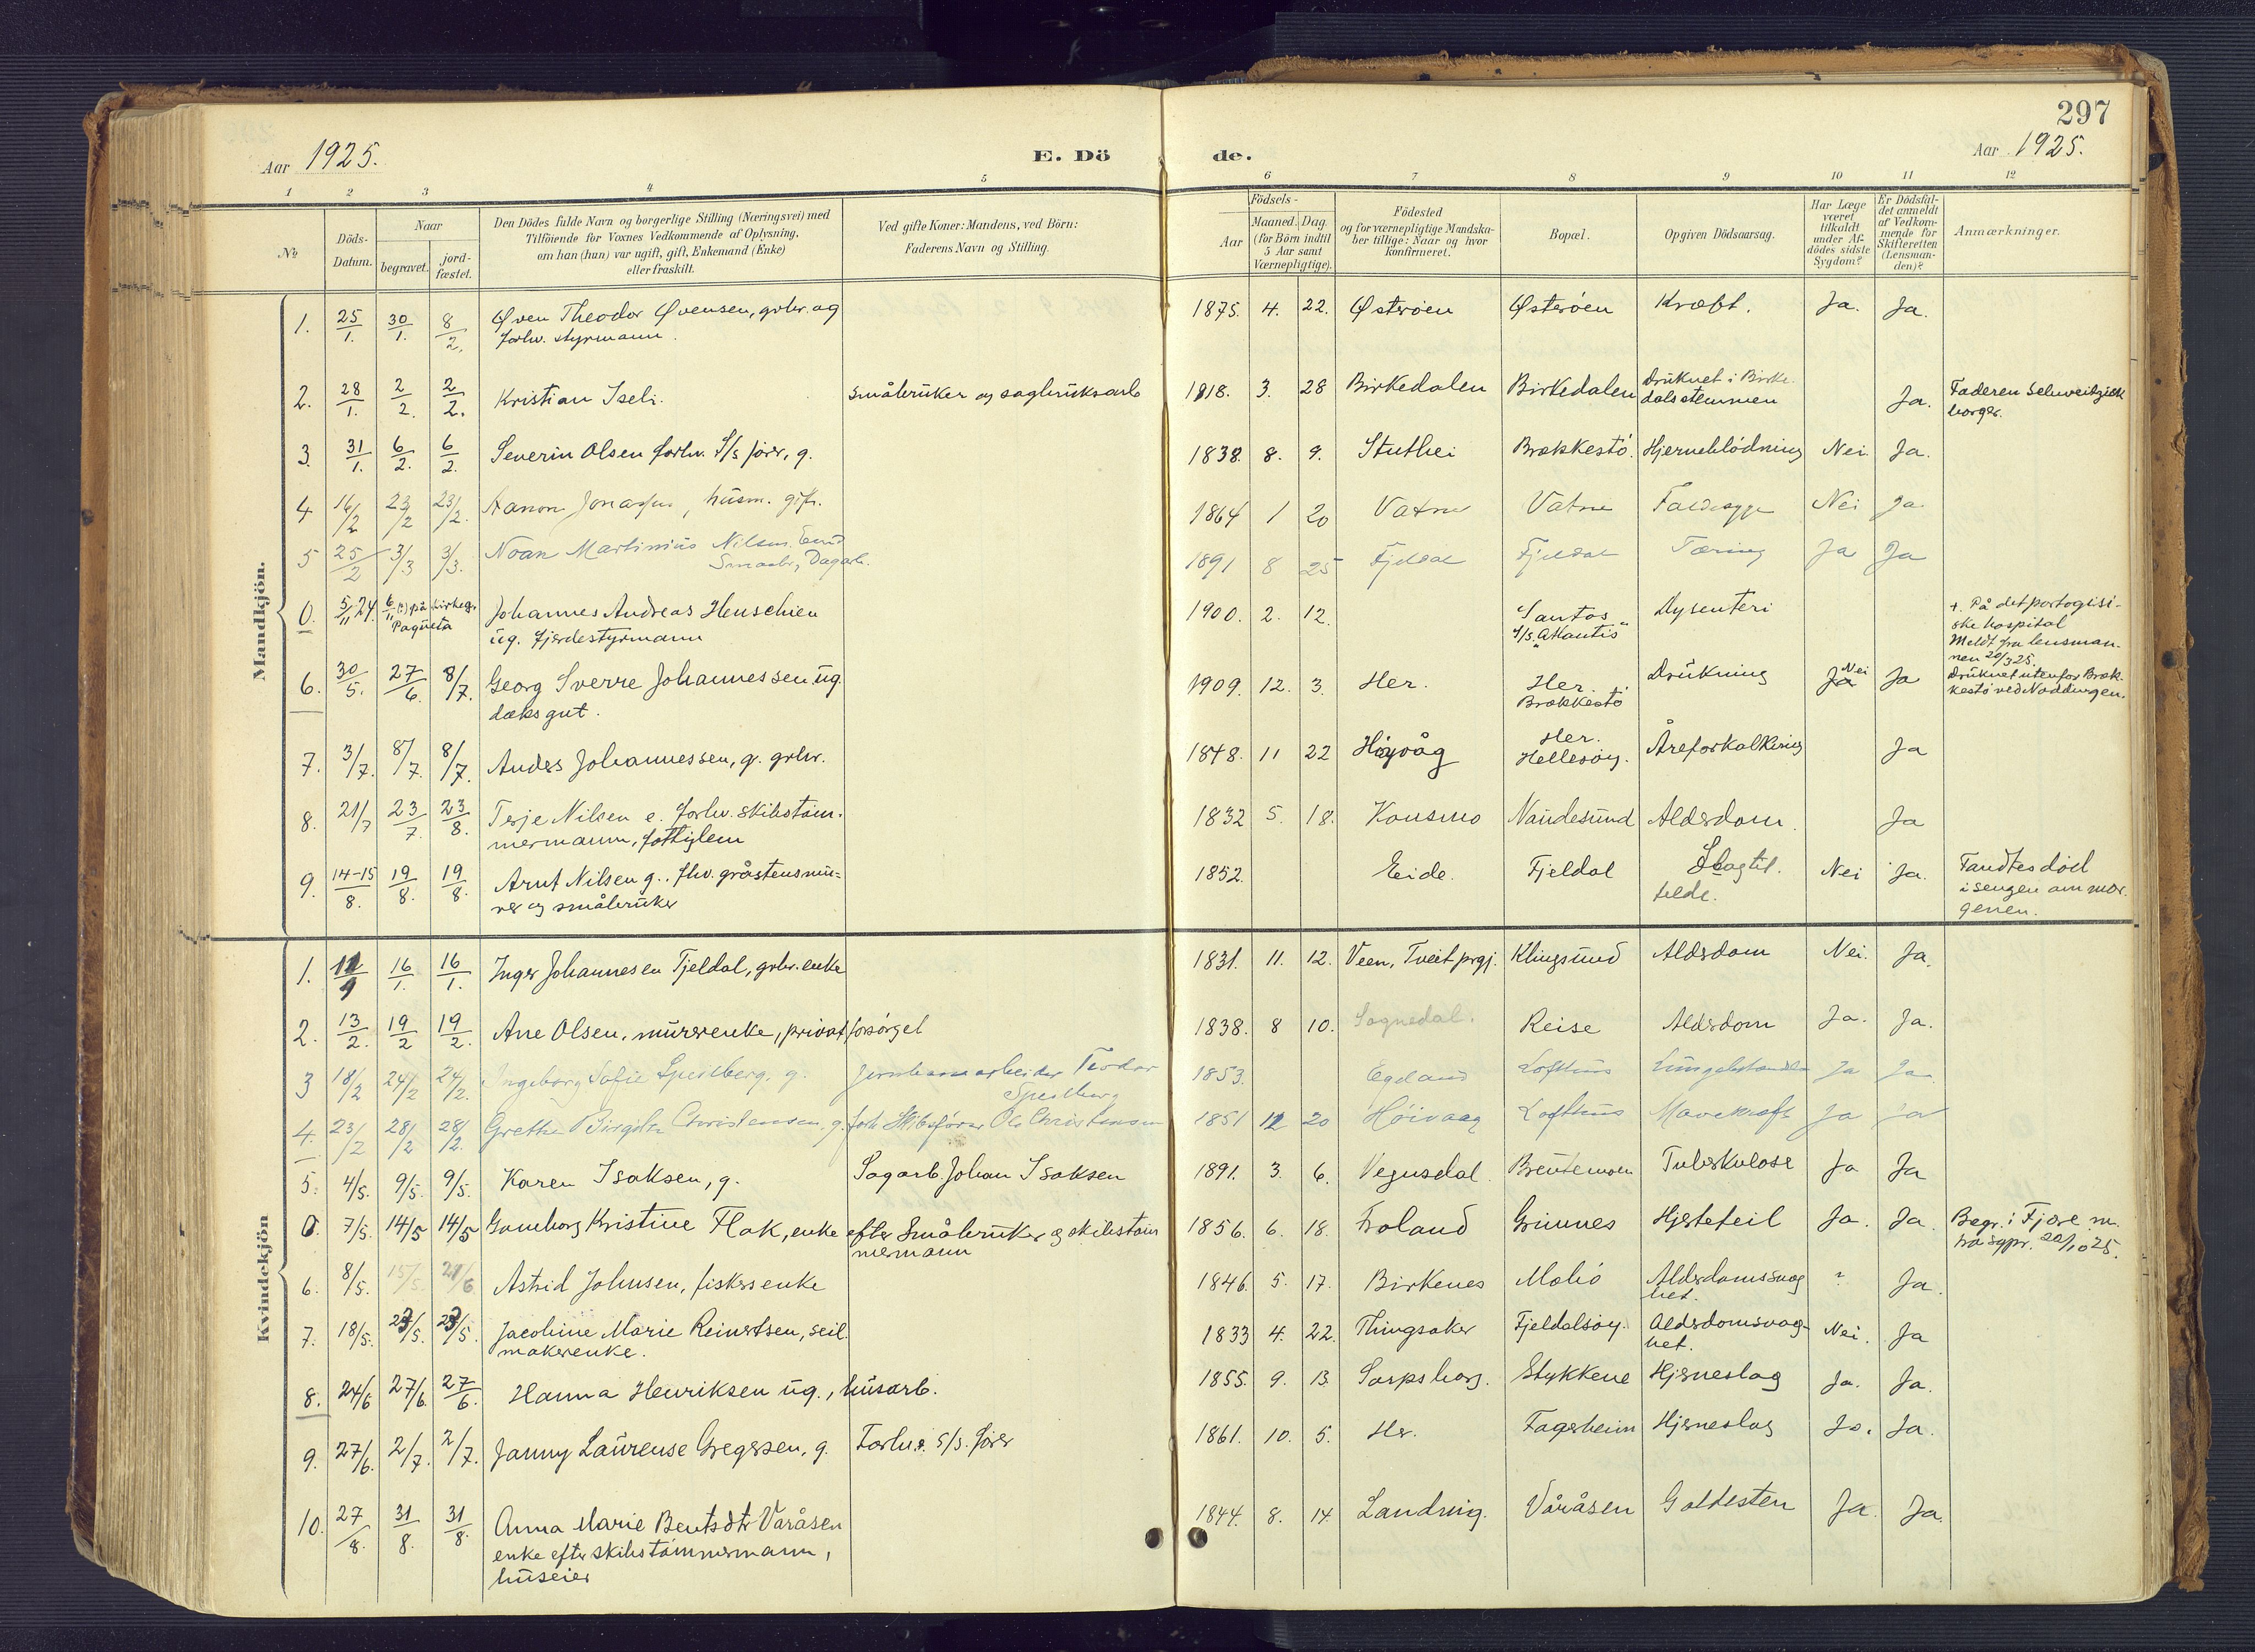 297
Aar 1925.
E. Dö de.
Aar 1925.
1 2 3 4 5 6 7 8 9 10 11 12
No
Döds-Datum.
Naar
begravet. jord-fæstet.
Den Dödes fulde Navn og borgerlige Stilling (Næringsvei) med
Tilföiende for Voxnes Vedkommende af Oplysning,
om han (hun) var ugift, gift, Enkemand (Enke)
eller fraskilt.
Ved gifte Koner: Mandens, ved Börn:
Faderens Navn og Stilling.
Födsels-
Aar Maaned. Dag.
(for Börn indtil
5 Aar samt
Værnepligtige).
Födested
og for værnepligtige Mandska-
ber tillige: Naar og hvor
konfirmeret.
Bopæl.
Opgiven Dödsaarsag.
Har Læge
været
tilkaldt
under Af-
dödes sidste
Sygdom?
Er Dödsfal-
det anmeldt
af Vedkom-
mende for
Skifteretten
(Lensman-
den)?
Anmærkninger.
Mandkjön.
1. 25/1. 30/1. 8/2. Øven Theodor Øvensen, grbr. og 1875. 4. 22. Østerøen Østerøen Kræft. Ja. Ja.
forhv. styrmann.
2. 28/1. 2/2. 2/2. Kristian Iseli. Småbruker og sagbruksarb 1918. 3. 28 Birkedalen Birkedalen Druknet i Birke-
dalsstemmen Ja. Faderen Schweitzisk
borger.
3. 31/1. 6/2. 6/2. Severin Olsen forhv. S/s fører, g. 1838. 8. 9. Stuthei Brækkestø. Hjerneblödning Nei Ja.
4 16/2 23/2 23/2. Aanon Jonassen, husm. gift. 1864 1 20 Vatne Vatne Faldesyge Nei Ja
5 25/2 3/3 3/3. Noan Martinius Nilsen
Smaabr, Dagarb. 1891 8 25 Fjeldal Fjeldal Tæring Ja Ja
0. 5/11 24. 6/11 (?) på kirkeg.
Paqueta Johannes Andreas Henschien 1900. 2. 12. Santos
ug. fjerdestyrmann S/s. "Atlantis" Dysenteri
+. På det portogisi-
ske hospital
Meldt fra lensman-
nen 20/3 25.
6. 30/5. 27/6. 8/7. Georg Sverre Johannessen ug 1909. 12. 3. Her. Her. Drukning Ja Nei Ja Druknet utenfor Bræk-
dæksgut. Brækkestø kestø ved Naddingen.
7. 3/7. 8/7. 8/7. Anders Johannessen, g. grbr. 1848. 11 22 Høyvåg Her.
Hellesøy. Åreforkalkning Ja
8. 21/7 23/7. 23/8. Terje Nilsen e. forhv. skibstøm- 1832 5. 18. Konsmo Naudesund Alderdom. Ja
mermann, fattiglem
9. 14-15/8. 19/8. 19/8. Arnt Nilsen g. fhv. gråstensmu- 1852. Eide. Fjeldal Slagtil- Nei Ja. Fandtes död
rer og småbruker felde. i sengen om mor-
genen.
Kvindekjön
1. 11/9 16/1. 16/1. Inger Johannesen Fjeldal, grbr. enke 1831. 11. 12. Veen, Tveit prgj. Klingsund Alderdom Nei. Ja.
2. 13/2. 19/2 19/2. Ane Olsen, murerenke, privat forsørget 1838. 8 10. Sognedal. Reise Alderdom Ja. Ja.
3 18/2 24/2 24/2. Ingeborg Sofie Speilberg, g. Jernbanearbeider Teodor
Speilberg 1853. Egeland Lofthus Ja Ja
4. 23/2 28/2 28/2. Grethe Birgitte Christensen, g. forh. Skibsfører Ole Christensen 1851 12 20 Høivaag Lofthus Mavekræft Ja Ja
5. 4/5. 9/5. 9/5. Karen Isaksen, g. Sagarb. Johan Isaksen 1891. 3. 6. Vegusdal. Tuberkulose Ja Ja
0. 7/5. 14/5 14/5 Guneborg Kristine Flak, enke efter Småbruker og skibstøm
mermann 1856. 6. 18. Froland Grimnes Hjertefeil Ja. Ja. Begr. i Fjære m.
fra sgpr. 20/10 25.
6. 8/5. 15/5. 21/6 Astrid Johnsen, fiskerenke 1846. 5. 17. Birkenes Malø Alderdomssvag
het. ? Ja.
7. 18/5. 23/5. 23/5. Jacobine Marie Reinertsen, seil- 1833 4. 22. Thingsaker Fjeldalsøy. Alderdomssvag-
makerenke. het. Nei. Ja
8. 24/6 27/6. 27/6. Hanna Henriksen ug., husarb. 1855. 9. 13. Sarpsborg. Stykkene Hjerneslag Ja. Ja.
9. 27/6. 2/7. 2/7. Janny Laurense Gregersen, g. Forhv. S/S. fører 1861. 10. 5. Her. Fagerheim Hjerneslag Ja. Ja.
10. 27/8. 31/8. 31/8. Anna Marie Bentsdtr Våråsen 1844. 8. 14. Landvig. Våråsen Galdesten Ja Ja.
enke efter skibstømmermann,
huseier